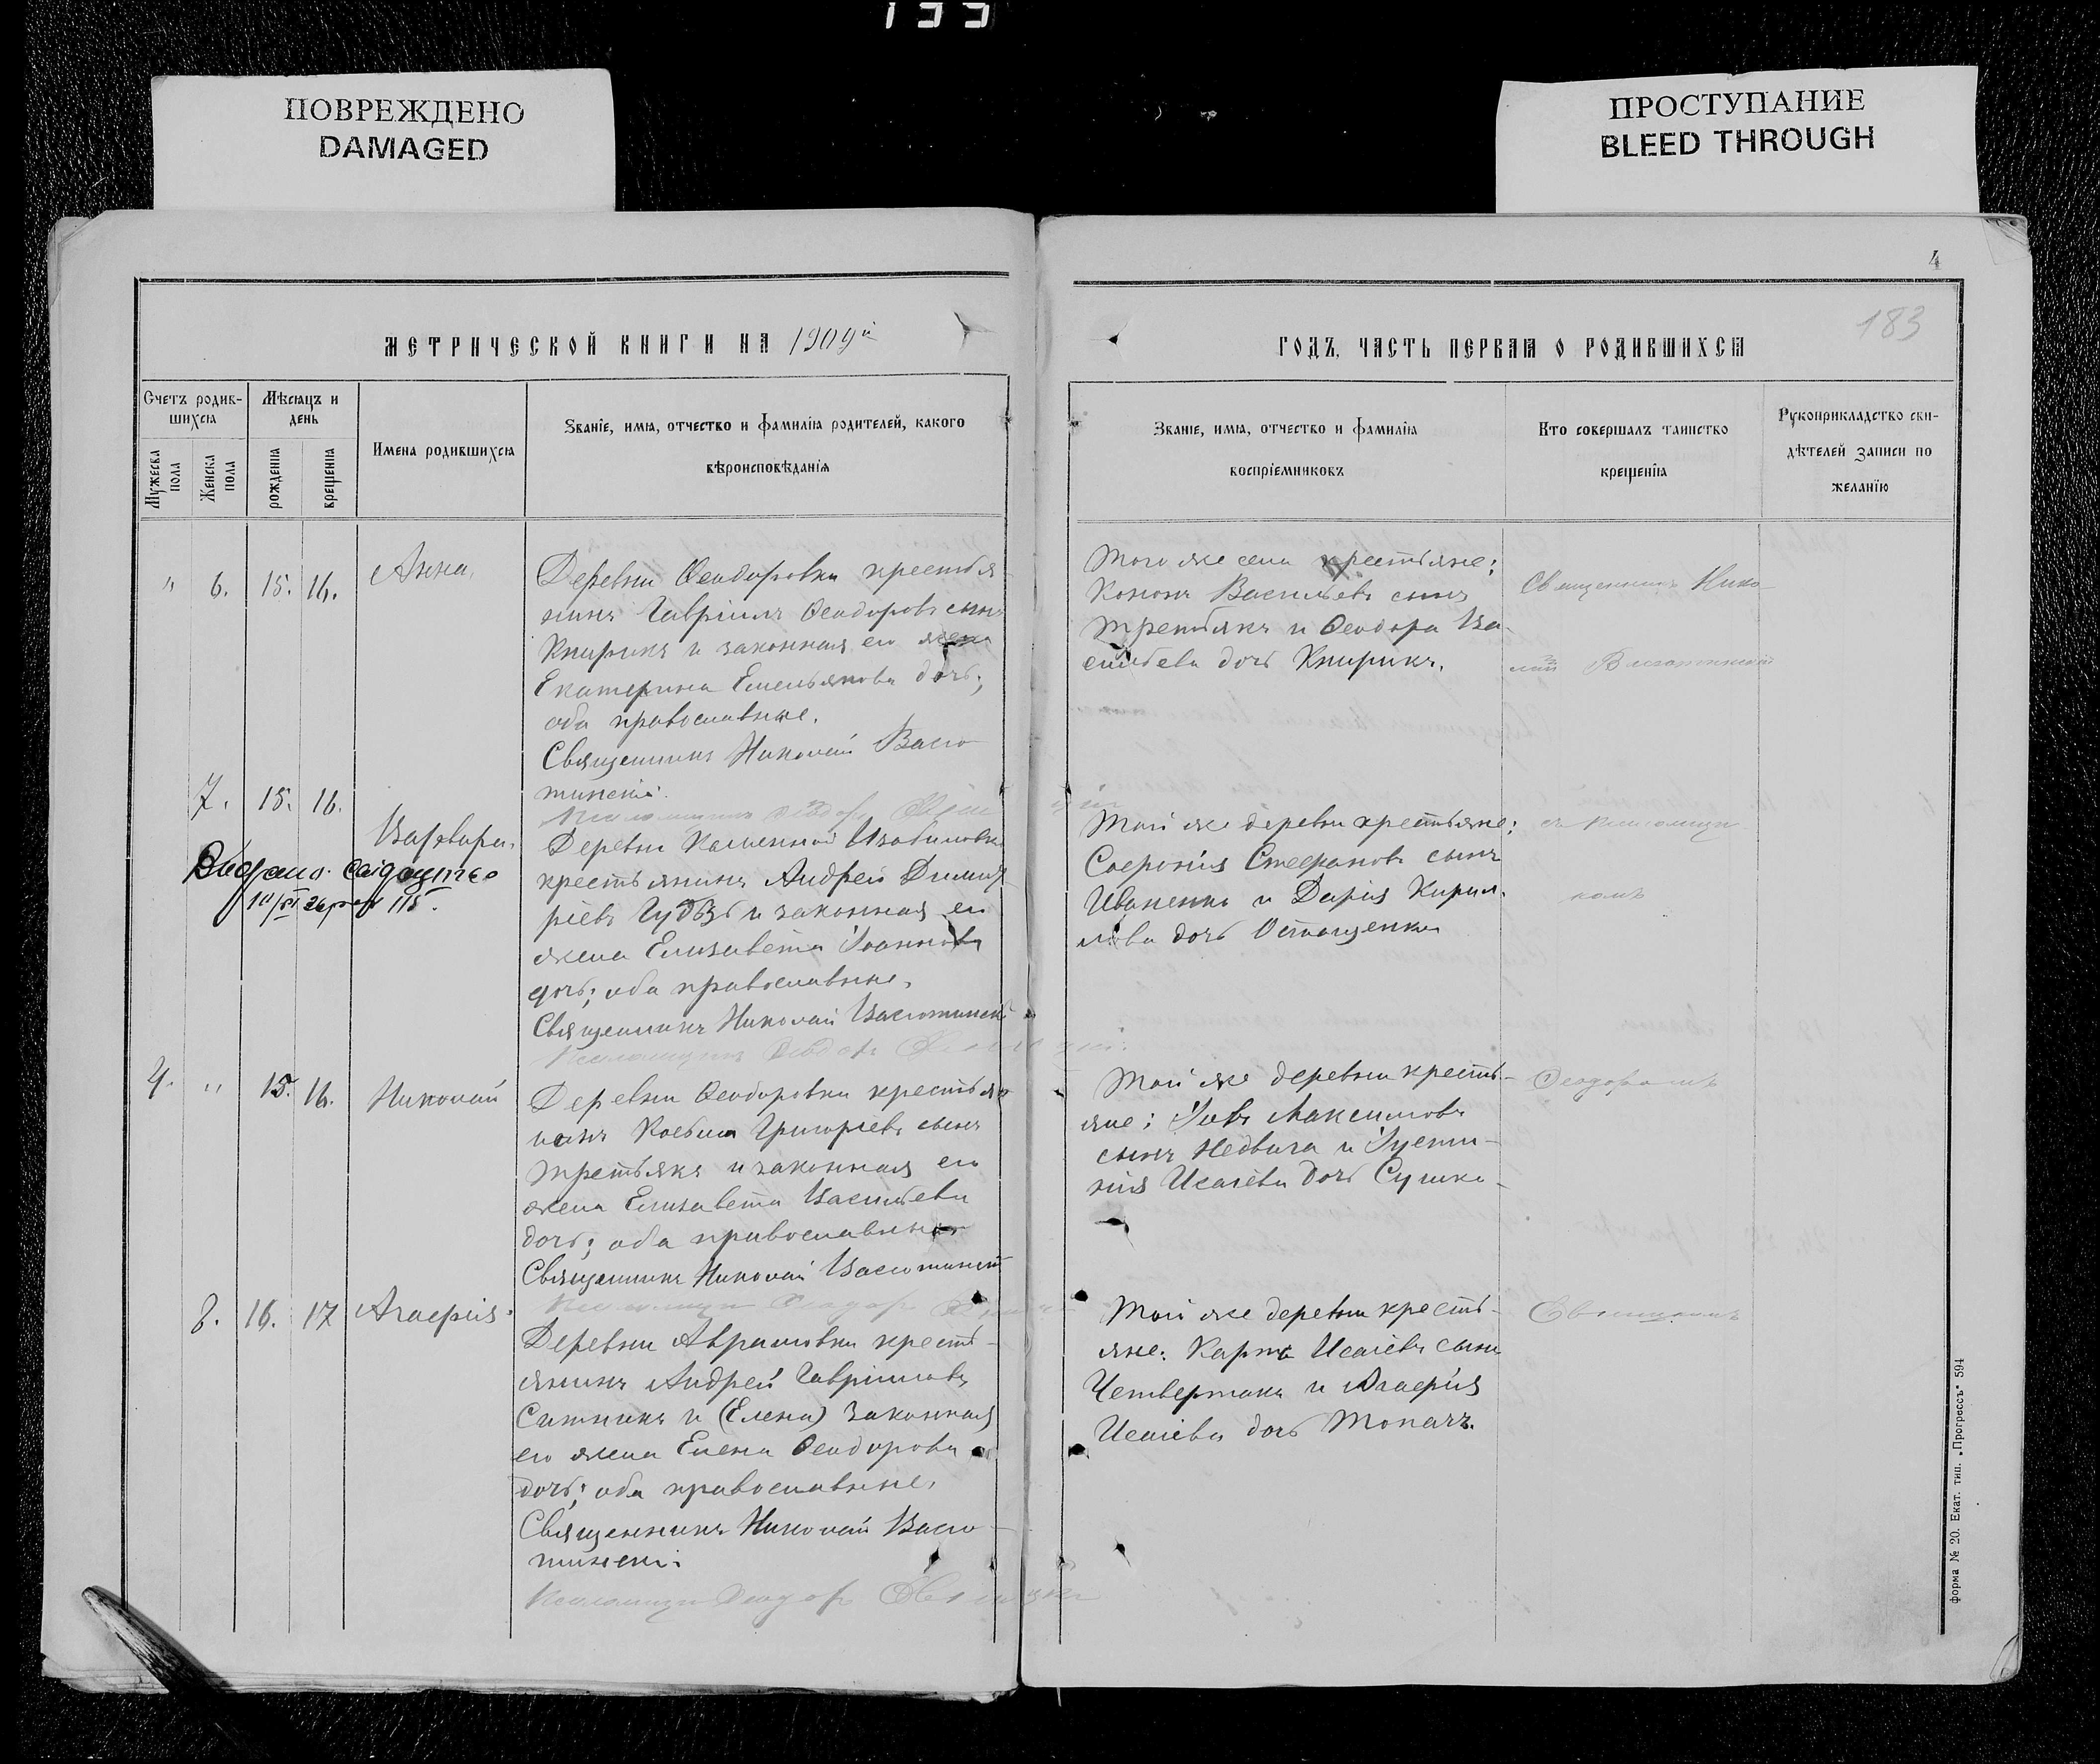 133
ПОВРЕЖДЕНО
DAMAGED
ПРОСТУПАНИЕ
BLEED THROUGH
4
183
МЕТРИЧЕСКОЙ КНИГИ НА 1909й
ГОДЪ, ЧАСТЬ ПЕРВАЯ О РОДИВШИХСЯ
Счетъ родив-
шихся
Мужеска пола
Женска пола
Мѣсяцъ и
день
рожденія
крещенія
Имена родившихся
Званіе, имя, отчество и фамилія родителей, какого
вѣроисповѣданія
Званіе, имя, отчество и фамилія
воспріемниковъ
Кто совершалъ таинство
крещенія
Рукоприкладство сви-
дѣтелей записи по
желанію
" 6. 15. 16. Анна.
Деревни Ѳеодоровки крестья-
нинъ Гавріилъ Ѳеодоровъ сынъ
Кнырикъ и законная его жена
Екатерина Емельянова дочь;
оба православные.
Священникъ Николай Васю-
тинскій.
Псаломщикъ Ѳеодоръ
Того же села крестьяне:
Кононъ Васильевъ сынъ
Третьякъ и Ѳеодора Ва-
сильева дочь Кнырикъ.
Священникъ Нико-
лай Васютинскій
7. 15. 16. Варвара.
Видано свідоцтво
Деревни Каменной
крестьянинъ Андрей Димит-
ріевъ Гудзь и законная его
жена Елизавета Іоаннова
дочь; оба православные.
Священникъ Николай Васютинскій
Псаломщикъ Ѳеодоръ
Той же деревни крестьяне:
Софронія Стефановъ сынъ
Иваненко и Дарія Кирил-
лова дочь Остащенко
съ псаломщи-
комъ
4. " 15. 16. Николай
Деревни Ѳеодоровки крестья-
нинъ Косьма Григоріевъ сынъ
Третьякъ и законная его
жена Елизавета Васильева
дочь; оба православные
Священникъ Николай Васютинскій
Псаломщикъ Ѳеодоръ
Той же деревни кресть-
яне: Іовъ Максимовъ
сынъ Недвига и Іусти-
нія Исаіева дочь Сушко-
Ѳеодоромъ
8. 16. 17 Агафія.
Деревни Аврамовки кресть-
янинъ Андрей Гавріиловъ
Ситникъ и (Елена) законная
его жена Елена Ѳеодорова
дочь; оба православные.
Священникъ Николай Васю-
тинскій.
Псаломщикъ Ѳеодоръ
Той же деревни кресть-
яне: Карпъ Исаіевъ сынъ
Четвертакъ и Агафія
Исаіева дочь Топачъ.
Форма № 20. Екат. тип. „Прогрессъ" 594